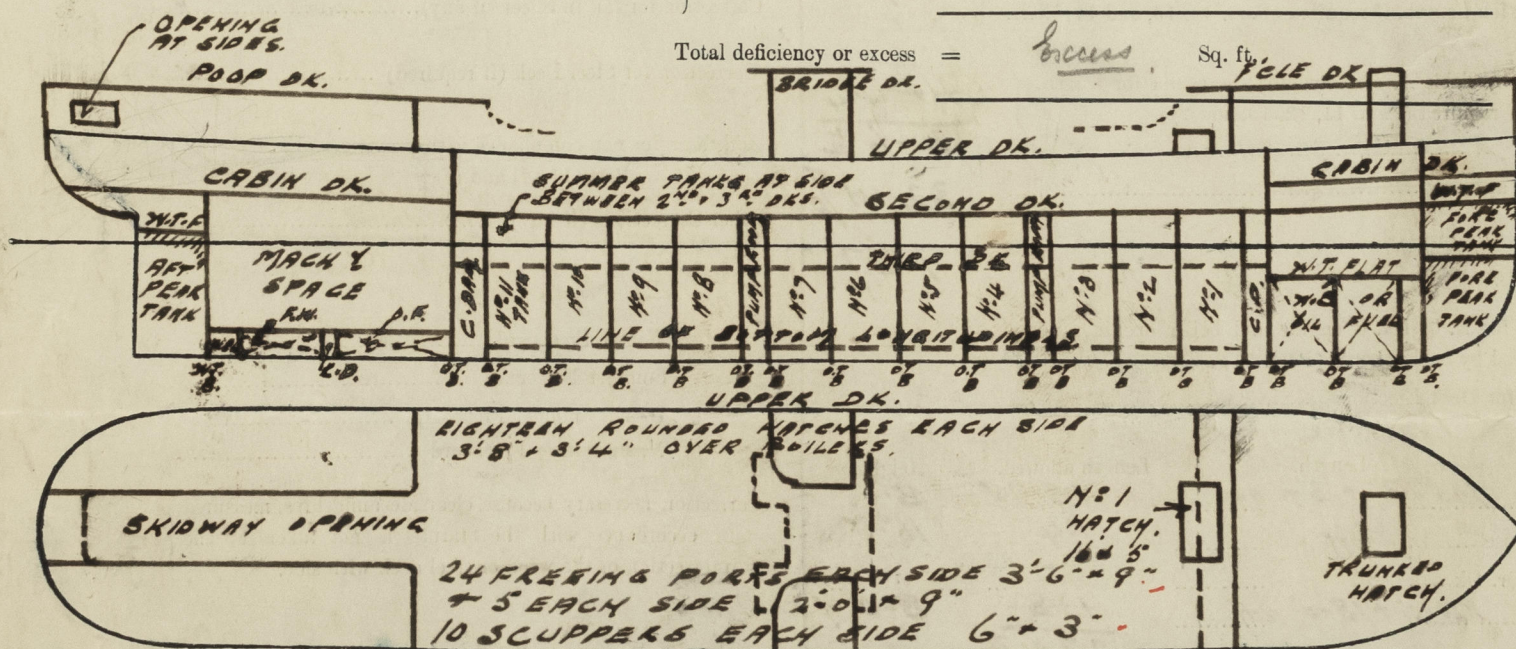 Total deficiency or excess = Excess. Sq. ft.
OPENING
AT SIDES.
POOP DK.
BRIDGE DK.
F'CLE DK
UPPER DK.
CABIN DK.
CABIN DK.
SUMMER TANKS AT SIDE
BETWEEN 2ND & 3RD DKS.
SECOND DK.
W.T.F
W.T.F
FORE
PEAK
TANK
MACHY
SPACE
AFT
PEAK
TANK
THIRD DK
W.T. FLAT
C. DAM
No 11
TANK
No 10
No 9
No 8
PUMP RM
No 7
No 6
No 5
No 4
PUMP RM
No 3
No 2
No 1
C.D.
OR
OIL FUEL
FORE
PEAK
TANK
F.W.
O.F.
LINE OF BOTTOM LONGITUDINALS
W.T.
B.
C.D.
O.T.
B.
O.T.
B.
O.T.
B.
O.T.
B.
O.T.
B.
O.T.
B.
O.T.
B.
O.T.
B.
O.T.
B.
O.T.
B.
O.T.
B.
O.T.
B.
O.T.
B.
O.T.
B.
O.T.
B.
O.T.
B.
O.T.
B.
O.T.
B.
UPPER DK.
EIGHTEEN ROUNDED HATCHES EACH SIDE
3'-8" & 3'-4" OVER BOILERS.
SKIDWAY OPENING
No 1
HATCH.
16 x 5
TRUNKED
HATCH.
24 FREEING PORTS EACH SIDE 3'-6" x 9"
+ 5 EACH SIDE 2'-0" x 9"
10 SCUPPERS EACH SIDE 6" x 3"